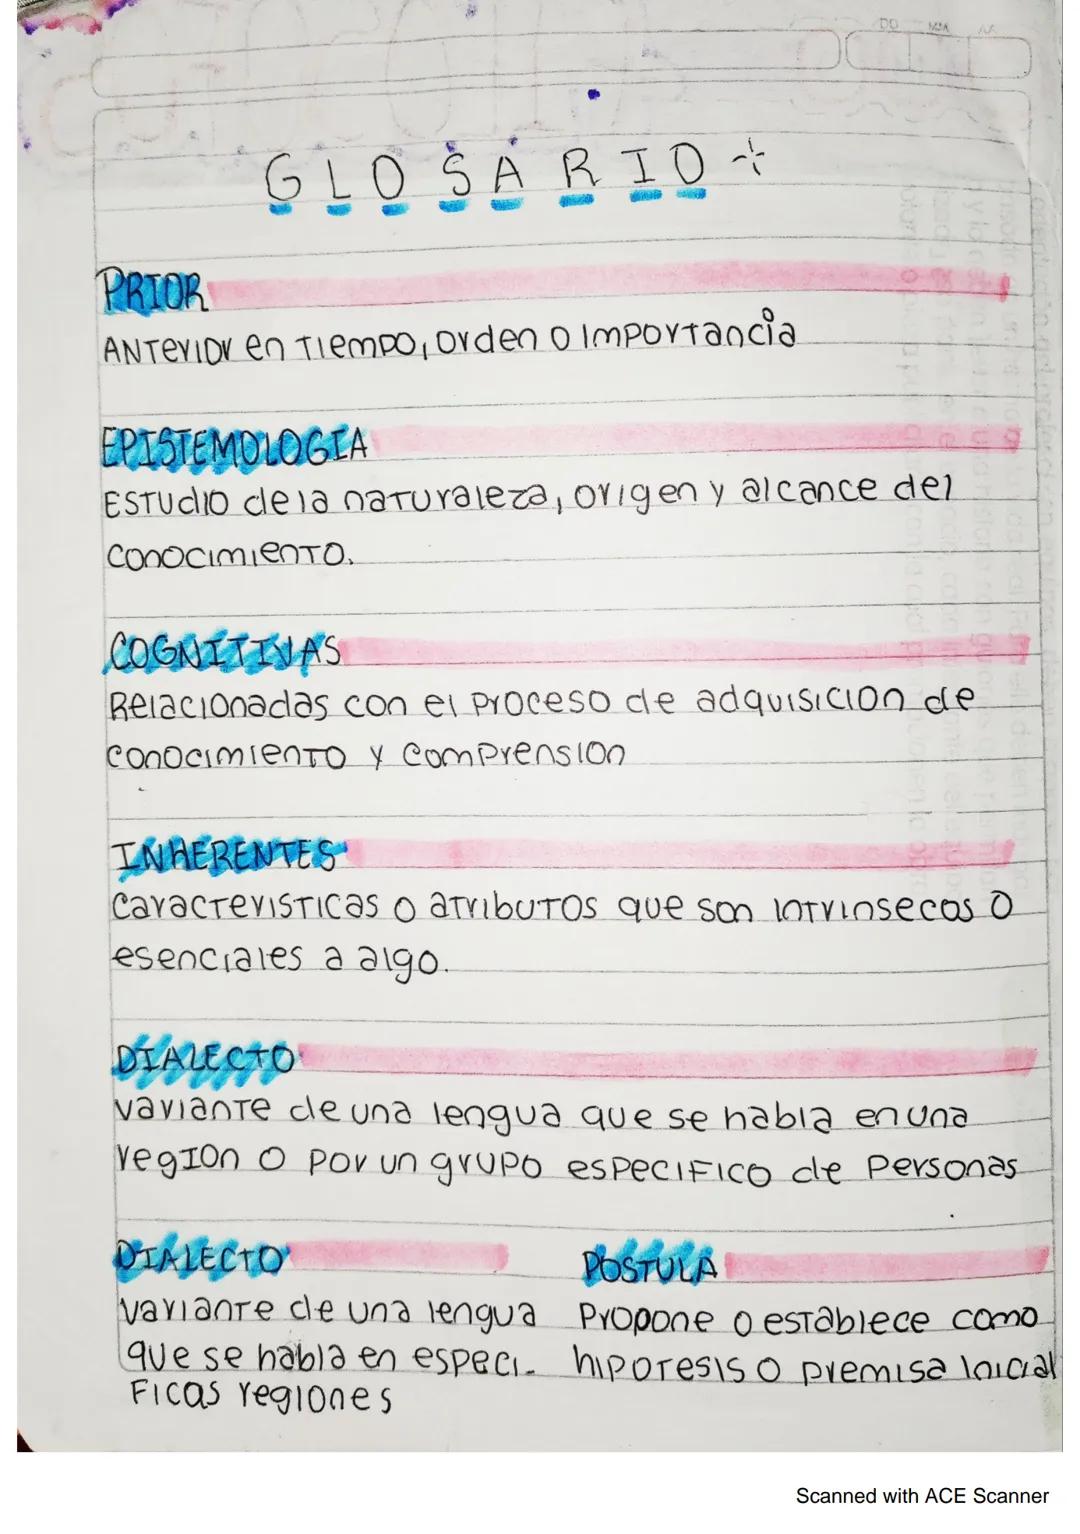 GLOSARIO
PRIOR
Anterior en tiempo, orden o importancia
EPISTEMOLOGIA
Estudio de la naturaleza, origen y alcance del
conocimiento.
COGNITIVAS
Relacionadas con el proceso de adquisicion de
conocimiento y comprension
INHERENTES
Caracteristicas o atributos que son intrinsecos o
esenciales a algo.
DIALECTO
variante de una lengua que se habla en una
region o por un grupo especifico de personas
DIALECTO
variante de una lengua
que se habla en especi-
ficas regiones
POSTULA
Propone o establece como
hipotesis o premisa inicial
Scanned with ACE Scanner